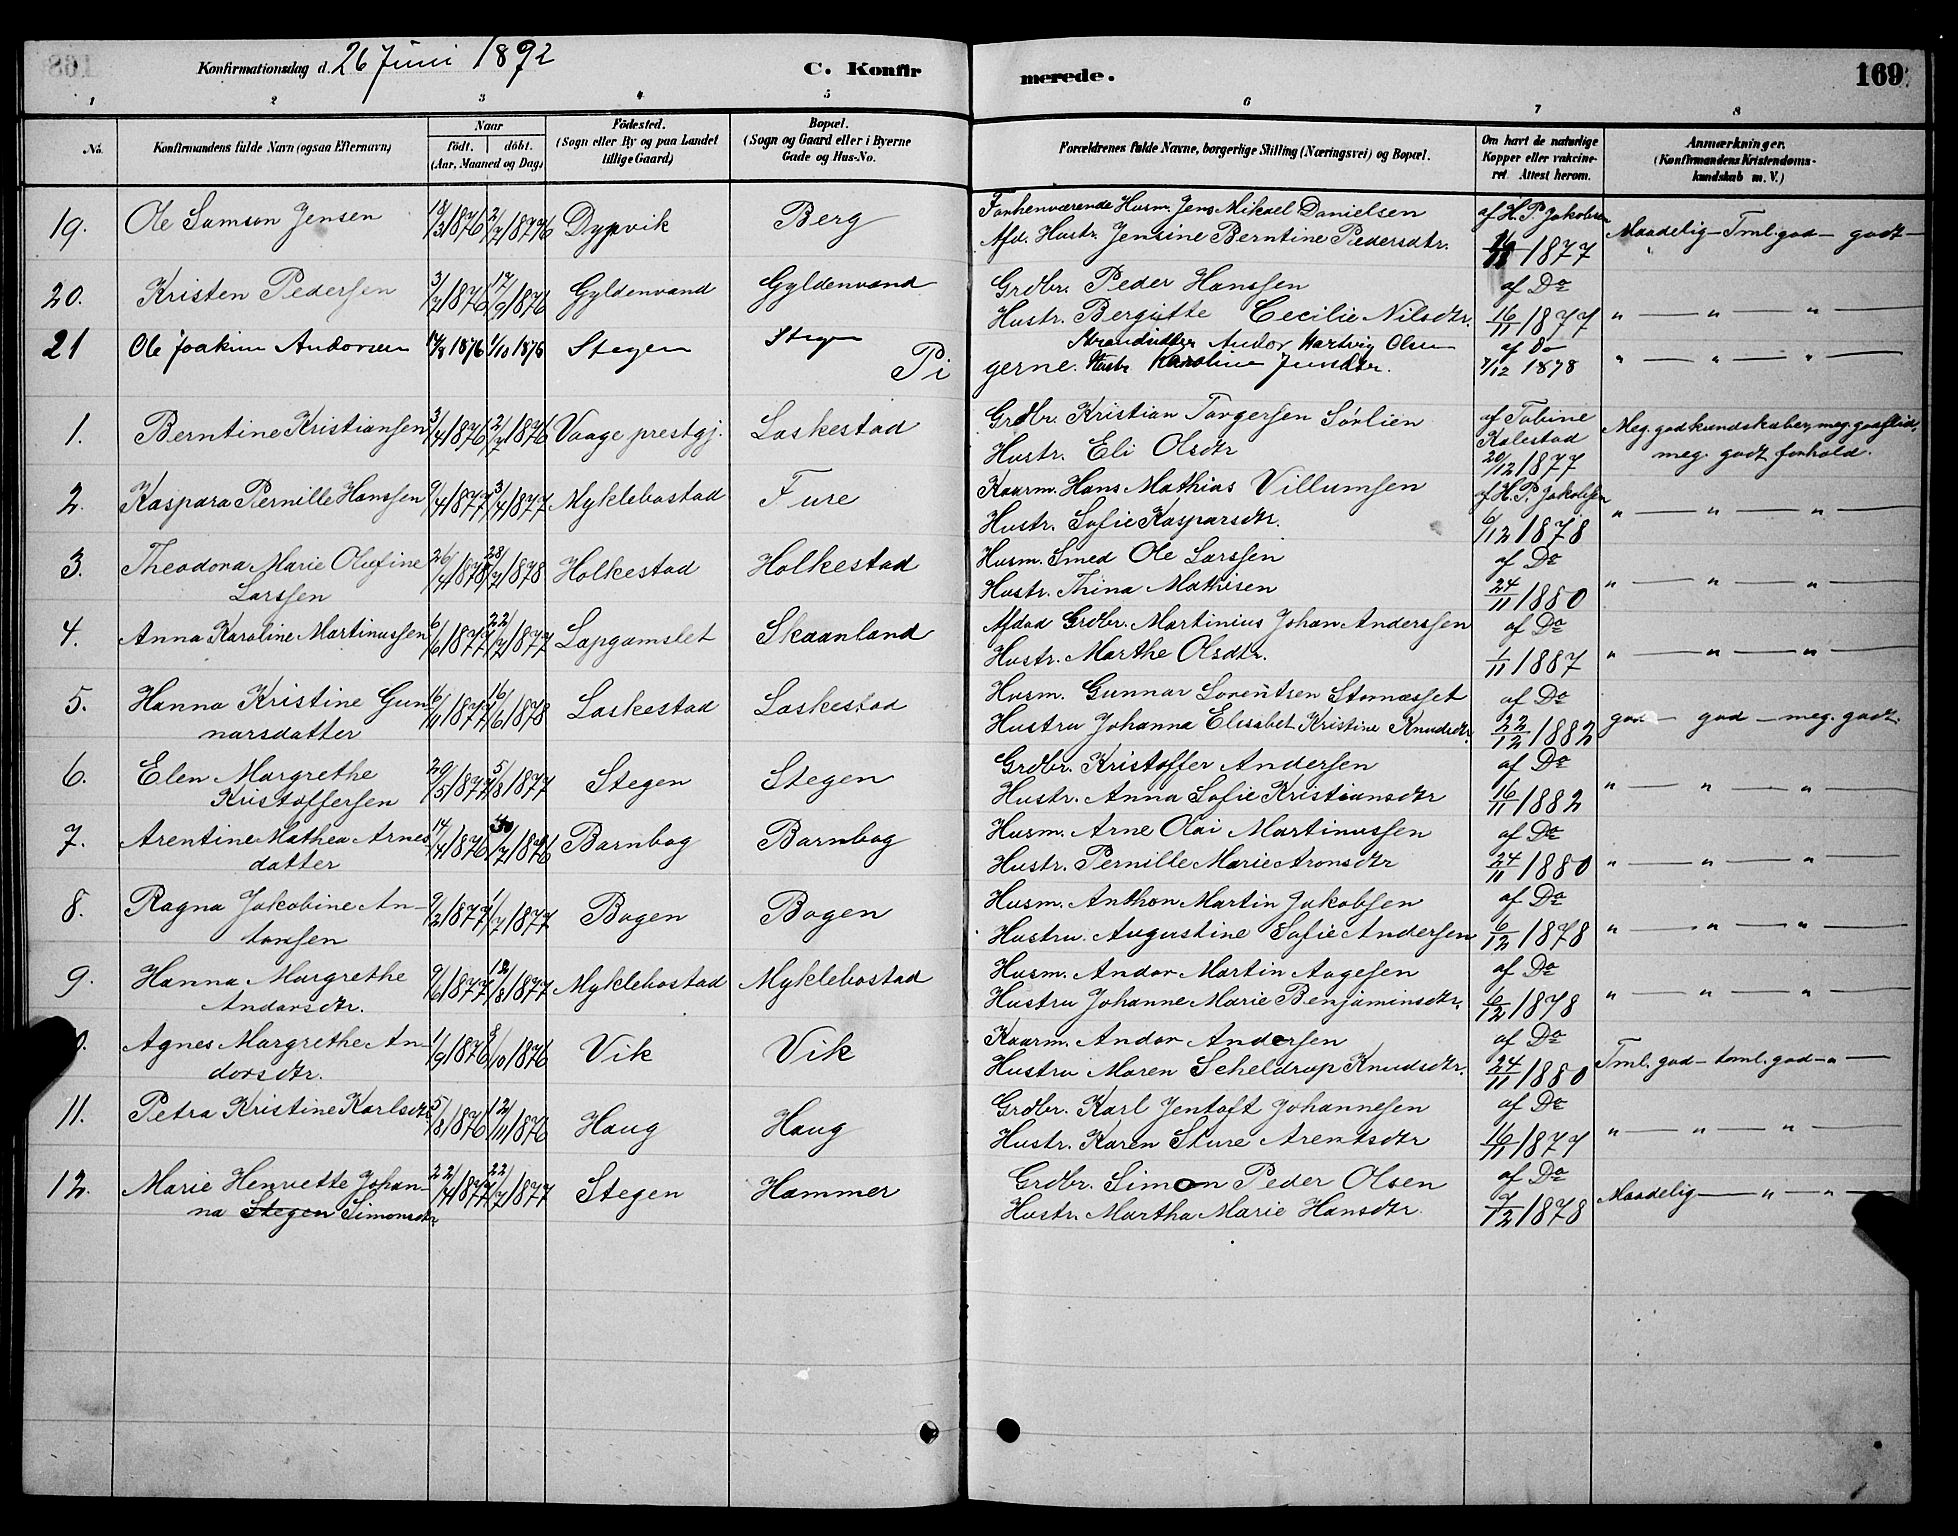 Konfirmationsdag d. 26 Juni 1892
C. Konfirmerede.
169
1 2 3 4 5 6 7 8
No.
Konfirmandens fulde Navn (ogsaa Efternavn)
Naar
født. døbt.
(Aar, Maaned og Dag)
Fødested.
(Sogn eller By og paa Landet
tillige Gaard)
Bopæl.
(Sogn og Gaard eller i Byerne
Gade og Hus-No.
Forældrenes fulde Navne, borgerlige Stilling (Næringsvei) og Bopæl.
Om havt de naturlige
Kopper eller vakcine-
ret. Attest herom.
Anmærkninger.
(Konfirmandens Kristendoms-
kundskab m. V.)
19. Ole Samson Jensen 18/3 1876 2/7 1876 Dypvik Berg Forhenværende Husm. Jens Mikael Danielsen af H. P. Jakobsen Maadelig — Tml. god — godt —
Afd. Hustr. Jensine Berntine Pedersdtr. 1877
20. Kristen Pedersen 3/7 1876 17/9 1876 Gyldenvand Gyldenvand Grdbr. Peder Hanssen af Do
Hustr. Bergitte Cecilie Nilsdtr. 16/11 1877 " — " — " —
21 Ole Joakim Andorsen 14/8 1876 1/10 1876 Stegen Stegen Strandsidder Andor Hartvig Olsen af Do
Pigerne. Hustr. Karoline Jensdtr. 7/12 1878 " — " — " —
1. Berntine Kristiansen 3/4 1876 2/7 1876 Vaage prestgj. Laskestad Grdbr. Kristian Torgersen Sørlien af Tobine Meg. god kundskaber, meg. god flid,
Hustr. Eli Olsdtr Kalestad 20/12 1877 meg. godt forhold.
2. Kaspara Pernille Hanssen 9/4 1877 3/4 1877 Myklebostad Fure Kaarm. Hans Mathias Villumsen af H. P. Jakobsen
Hustr. Sofie Kasparsdtr. 6/12 1878 " — " — " —
3. Theodora Marie Olufine 26/4 1878 28/7 1878 Holkestad Holkestad Husm. Smed Ole Larssen af Do
Larssen Hustr. Thina Mathisen 24/11 1880 " — " — " —
4. Anna Karoline Martinussen 6/6 1877 22/7 1877 Lapgamslet Skaanland Afdød Grdbr. Martinius Johan Anderssen af Do
Hustr. Marthe Olsdtr. 1/11 1887 " — " — " —
5. Hanna Kristine Gun- 16/11 1877 16/6 1878 Laskestad Laskestad Husm. Gunnar Lorentsen Stornæsset af Do
narsdatter Hustru Johanna Elisabet Kristine Knudsdtr. 22/12 1882 god — god — meg. godt.
6. Elen Margrethe 29/5 1877 5/8 1877 Stegen Stegen Grdbr. Kristoffer Andersen af Do
Kristoffersen Hustr. Anna Sofie Kristiansdtr 16/11 1882 " — " — " —
7. Arentine Mathea Arnes- 17/4 1876 30/7 1876 Barnbog Barnbog Husm. Arne Olai Martinussen af Do
datter Hustr. Pernille Marie Aronsdtr 24/11 1880 " — " — " —
8. Ragna Jakobine An- 9/2 1877 1/7 1877 Bogen Bogen Husm. Anthon Martin Jakobsen af Do
tonsen Hustru. Augustine Sofie Andersen 6/12 1878 " — " — " —
9. Hanna Margrethe 9/6 1877 12/8 1877 Myklebostad Myklebostad Husm. Andor Martin Aagesen af Do
Andorsdtr. Hustru Johanne Marie Benjaminsdtr. 6/12 1878 " — " — " —
0. Agnes Margrethe An- 1/9 1876 8/10 1876 Vik Vik Kaarm. Andor Andersen af Do
dorsdtr. Hustru Maren Scheldrup Knudsdtr. 24/11 1880 Tml. god — toml. god — " —
11. Petra Kristine Karlsdtr 5/8 1876 12/11 1876 Haug Haug Grdbr. Karl Jentoft Johannesen af Do
Hustr. Karen Sture Arentsdtr 16/11 1877 " — " — " —
12. Marie Henriette Johan- 22/4 1877 22/7 1877 Stegen Hammer Grdbr. Simon Peder Olsen af Do
na Stegen Simonsdtr Hustr. Martha Marie Hansdtr. 7/12 1878 Maadelig — " — " —